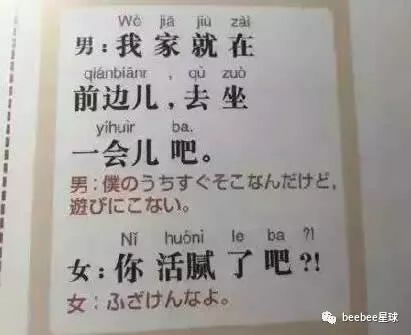 Wǒ jiā jiù zài
男：我家就在
qiánbiānr , qù zuò
前边儿，去坐
yíhuìr ba.
一会儿吧。
男：僕のうちすぐそこなんだけど，
遊びにこない。
Nǐ huónì le ba ?!
女：你活腻了吧?!
女：ふざけんなよ。
beebee星球